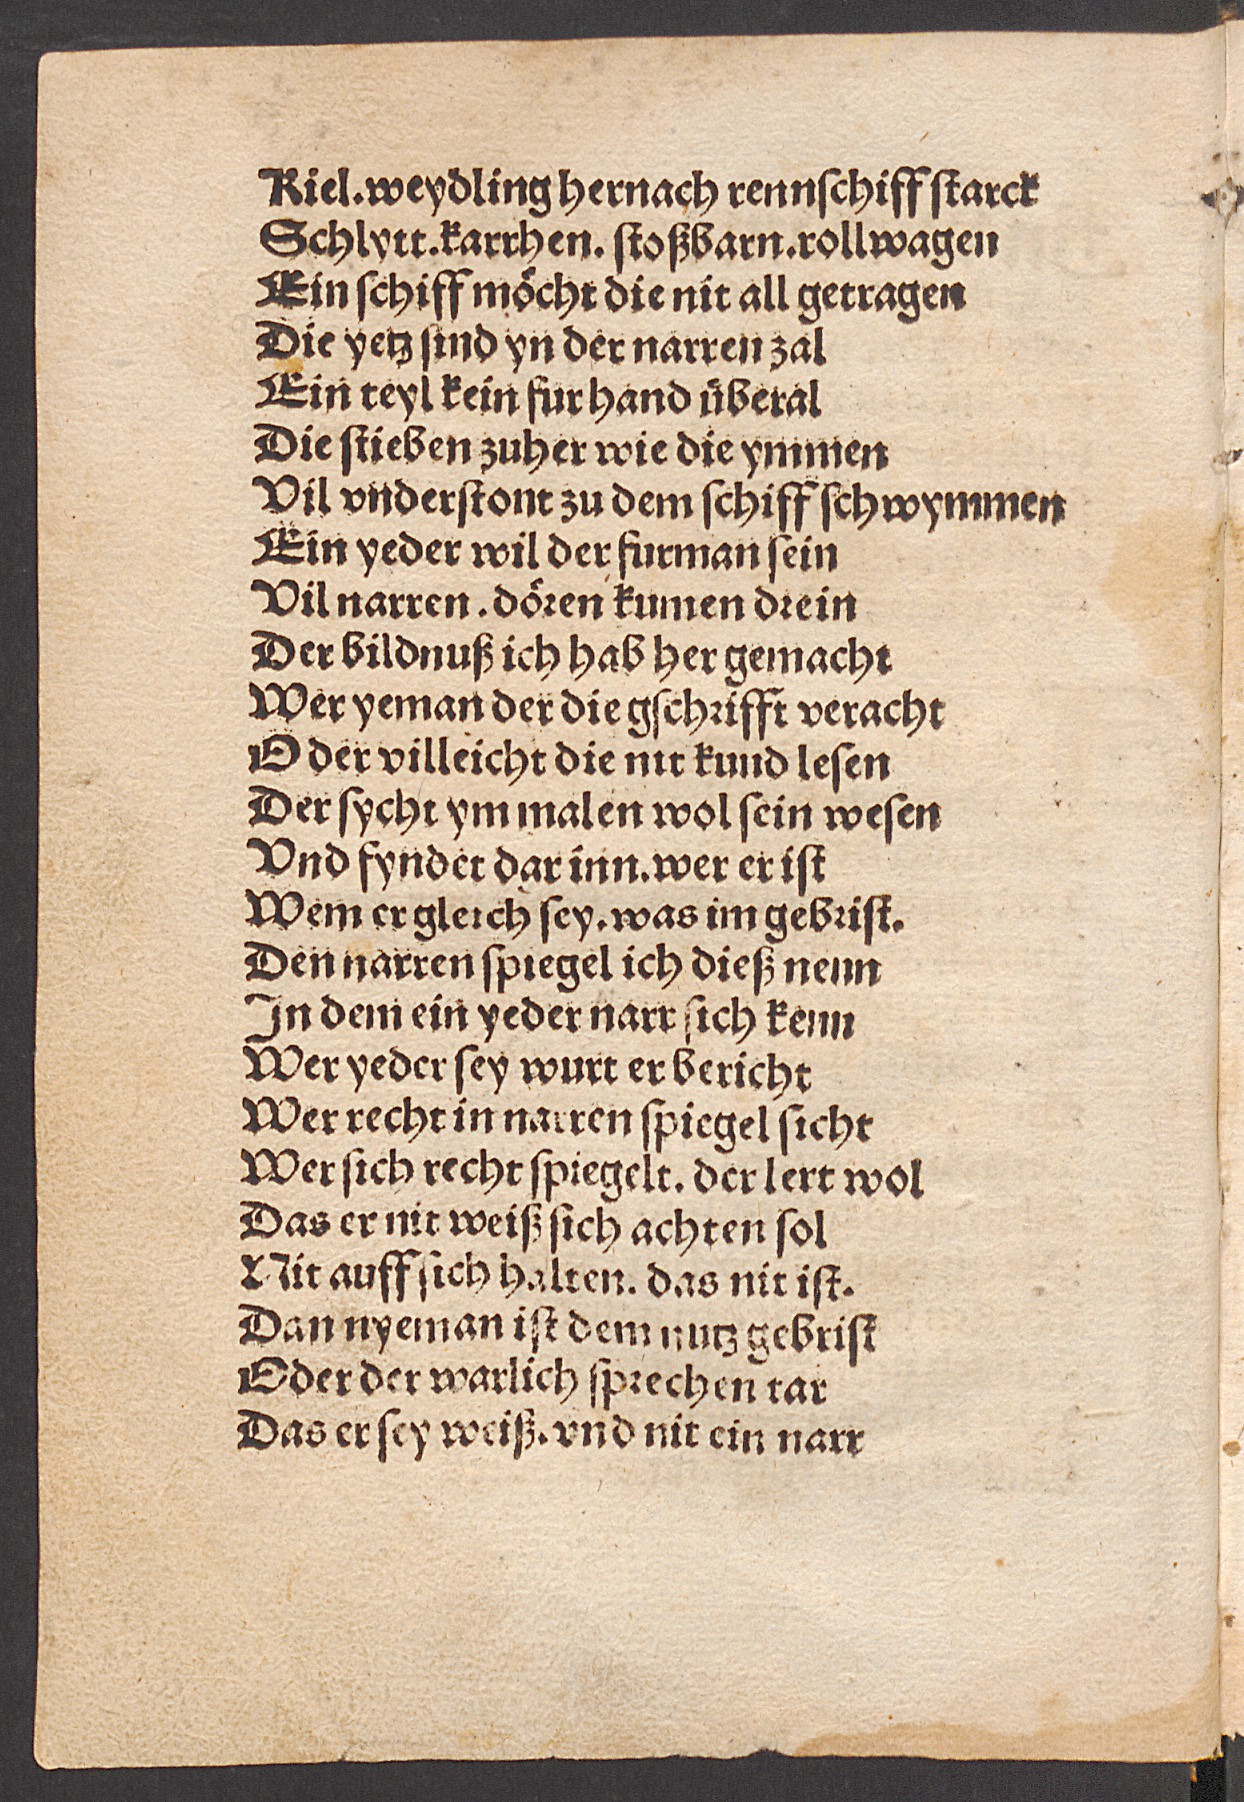 Kiel.weydling hernach rennschiff starck
Schlytt.karrhen. stoßbarn.rollwagen
Ein schiff möcht die nit all getragen
Die yetz sind yn der narren zal
Ein teyl kein fur hand überal
Die stieben zuher wie die ymmen
Vil vnderstont zu dem schiff schwymmen
Ein yeder wil der furman sein
Vil narren . dören kumen drein
Der bildnuß ich hab her gemacht
Wer yeman der die gschrifft veracht
Oder villeicht die nit kund lesen
Der sycht ym malen wol sein wesen
Vnd fyndet dar inn.wer er ist
Wem er gleich sey.was im gebrist.
Den narren spiegel ich dieß nenn
In dem ein yeder narr sich kenn
Wer yeder sey wurt er bericht
Wer recht in narren spiegel sicht
Wer sich recht spiegelt. der lert wol
Das er nit weiß sich achten sol
Nit auff sich halten. das nit ist.
Dan nyeman ist dem nutz gebrist
Oder der warlich sprechen tar
Das er sey weiß.vnd nit ein narr